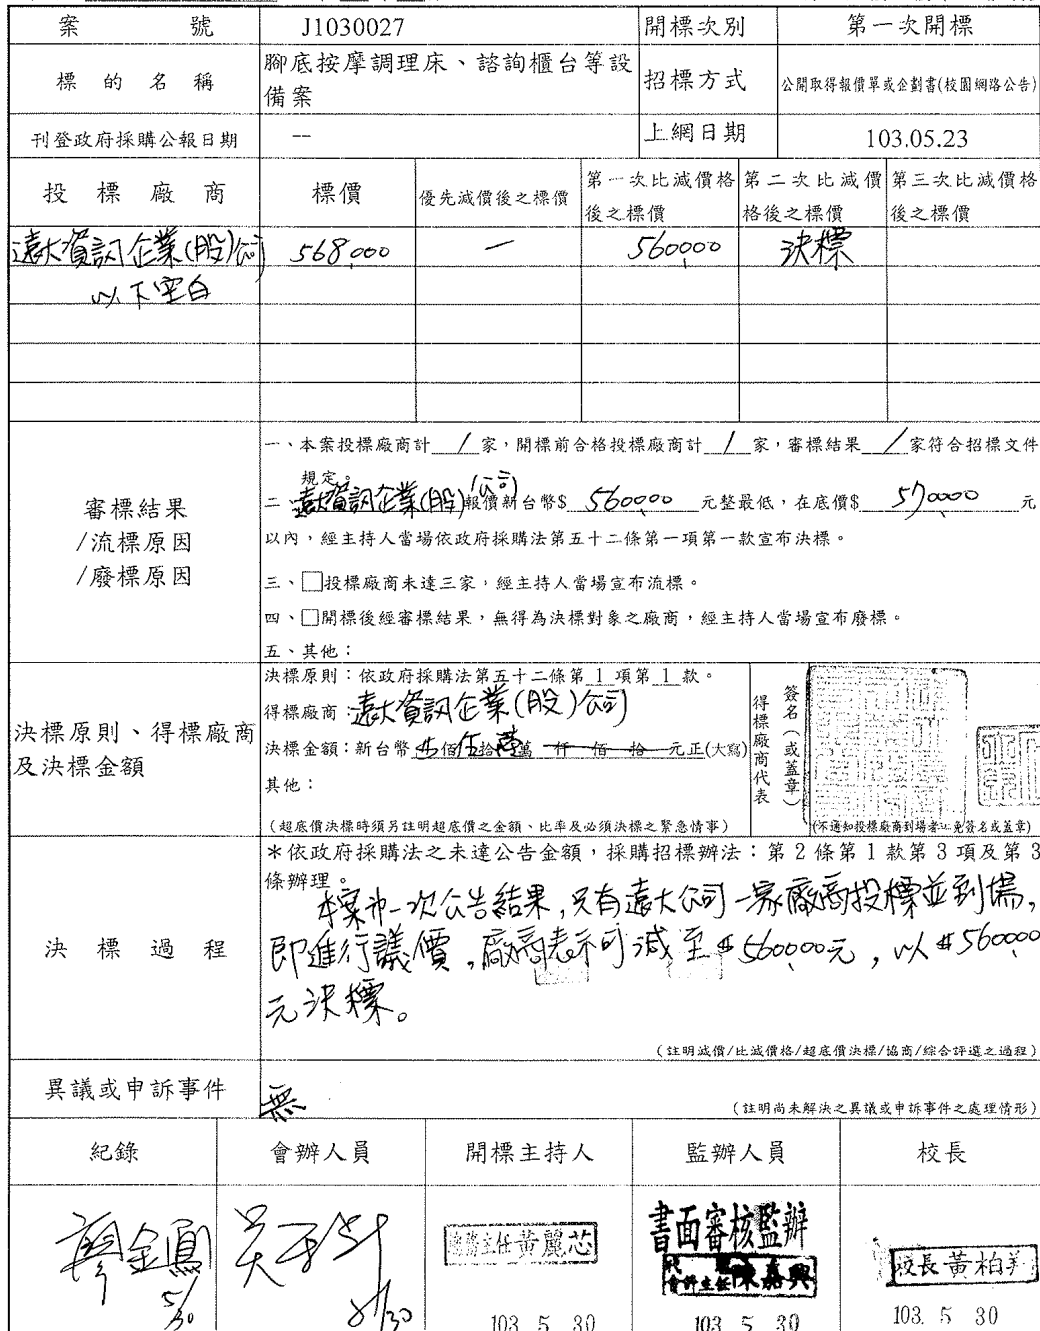 案號 J1030027 開標次別 第一次開標
標的名稱 腳底按摩調理床、諮詢櫃台等設
備案
招標方式 公開取得報價單或企劃書(校園網路公告)
刊登政府採購公報日期 -- 上網日期 103.05.23
投標廠商 標價 優先減價後之標價 第一次比減價格
後之標價 第二次比減價
格後之標價 第三次比減價格
後之標價
遠大資訊企業(股)公司 568,000 — 560,000 決標
以下空白
審標結果
/流標原因
/廢標原因
一、本案投標廠商計 1 家,開標前合格投標廠商計 1 家,審標結果 1 家符合招標文件
規定。
二、遠大資訊企業(股)公司報價新台幣$ 560,000 元整最低,在底價$ 570,000 元
以內,經主持人當場依政府採購法第五十二條第一項第一款宣布決標。
三、□投標廠商未達三家,經主持人當場宣布流標。
四、□開標後經審標結果,無得為決標對象之廠商,經主持人當場宣布廢標。
五、其他:
決標原則、得標廠商
及決標金額
決標原則:依政府採購法第五十二條第 1 項第 1 款。
得標廠商:遠大資訊企業(股)公司
決標金額:新台幣 伍佰 拾 萬 仟 佰 拾 元正(大寫)
其他:
(超底價決標時須另註明超底價之金額、比率及必須決標之緊急情事)
得標廠商代表
簽名(或蓋章)
(不通知投標廠商到場者 免簽名或蓋章)
決標過程
*依政府採購法之未達公告金額,採購招標辦法:第2條第1款第3項及第3
條辦理。
本案第一次公告結果,只有遠大公司一家廠商投標並到場,
即進行議價,廠商表示可減至$560,000元,以$560,000
元決標。
(註明減價/比減價格/超底價決標/協商/綜合評選之過程)
異議或申訴事件 無
(註明尚未解決之異議或申訴事件之處理情形)
紀錄 會辦人員 開標主持人 監辦人員 校長
廖金鳳
5/30
5/30
總務主任黃麗芯
103. 5. 30
書面審核監辦
會計主任陳嘉興
103. 5. 30
校長黃柏
103. 5. 30